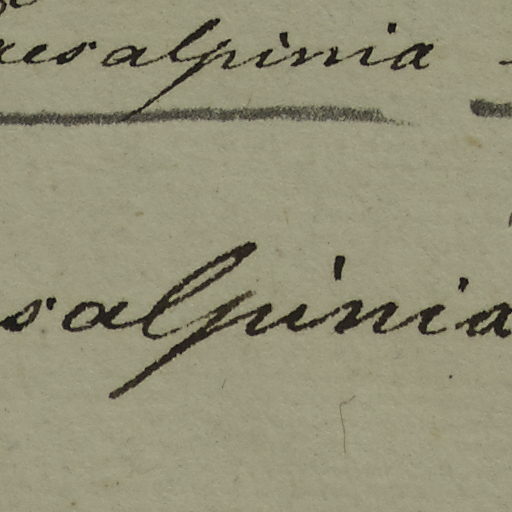 aesalpinia
salpinia